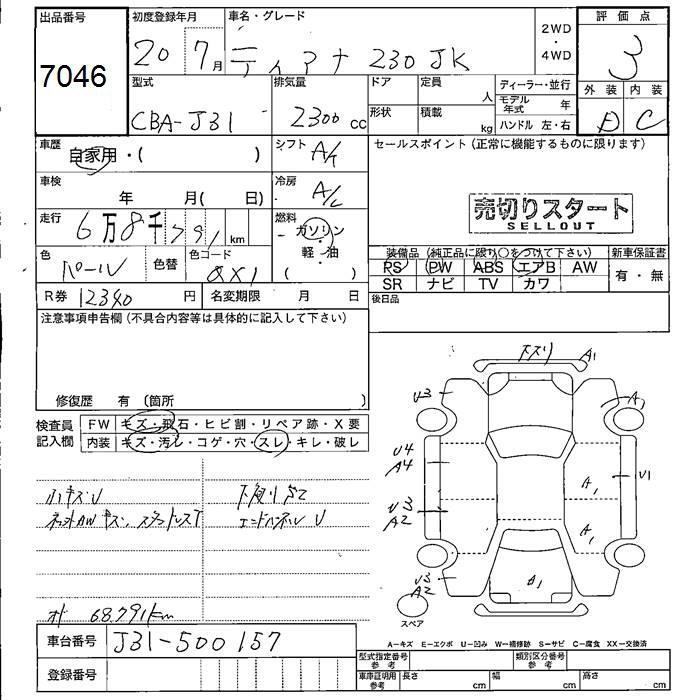 出品番号
7046
初度登録年月
20 7月
車名・グレード
ティアナ 230 JK
2WD
・
4WD
評価点
3
外装 内装
D C
型式
CBA-J31
排気量
2300 cc
ドア
定員
人
形状
積載
kg
ディーラー・並行
モデル年式 年
ハンドル 左・右
車歴
自家用・( )
シフト
A/T
車検
年 月( 日)
冷房
A/C
走行
6万8千791 km
燃料
ガソリン
・
軽・油
( )
色
パール
色替
色コード
QX1
R券 12340 円
名変期限 月 日
セールスポイント (正常に機能するものに限ります)
売切りスタート
SELLOUT
装備品 (純正品に限り○をつけて下さい)
PS PW ABS エアB AW
SR ナビ TV カワ
新車保証書
有・無
後日品
注意事項申告欄 (不具合内容等は具体的に記入して下さい)
修復歴 有 〔箇所 〕
検査員
記入欄
FW キズ・飛石・ヒビ割・リペア跡・X要
内装 キズ・汚レ・コゲ・穴・スレ・キレ・破レ
小キズU
下廻りサビ
エンドパネル U
68.791km
車台番号 J31-500157
登録番号
下スリ A1
U3
A1
U4
A4
U1
A1
U3
A2
A1
U3
A2
A1
スペア
A—キズ E—エクボ U—凹み W—補修跡 S—サビ C—腐食 XX—交換済
型式指定番号
参考
類別区分番号
参考
車庫証明用
参考
長さ cm
幅 cm
高さ cm